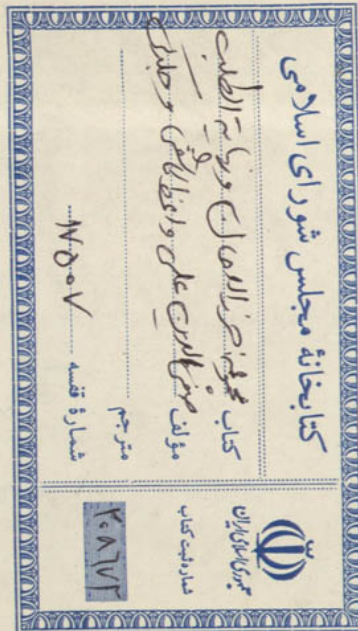 کتابخانهٔ مجلس شورای اسلامی
کتاب مجموعه حرز الامان و نهایة الطلب
مؤلف صفی الدین علی واعظ کاشفی و جلدکی
مترجم
شمارهٔ قفسه ۱۷۵۰۷
جمهوری اسلامی ایران
شماره ثبت کتاب
۲۰۸۶۷۲